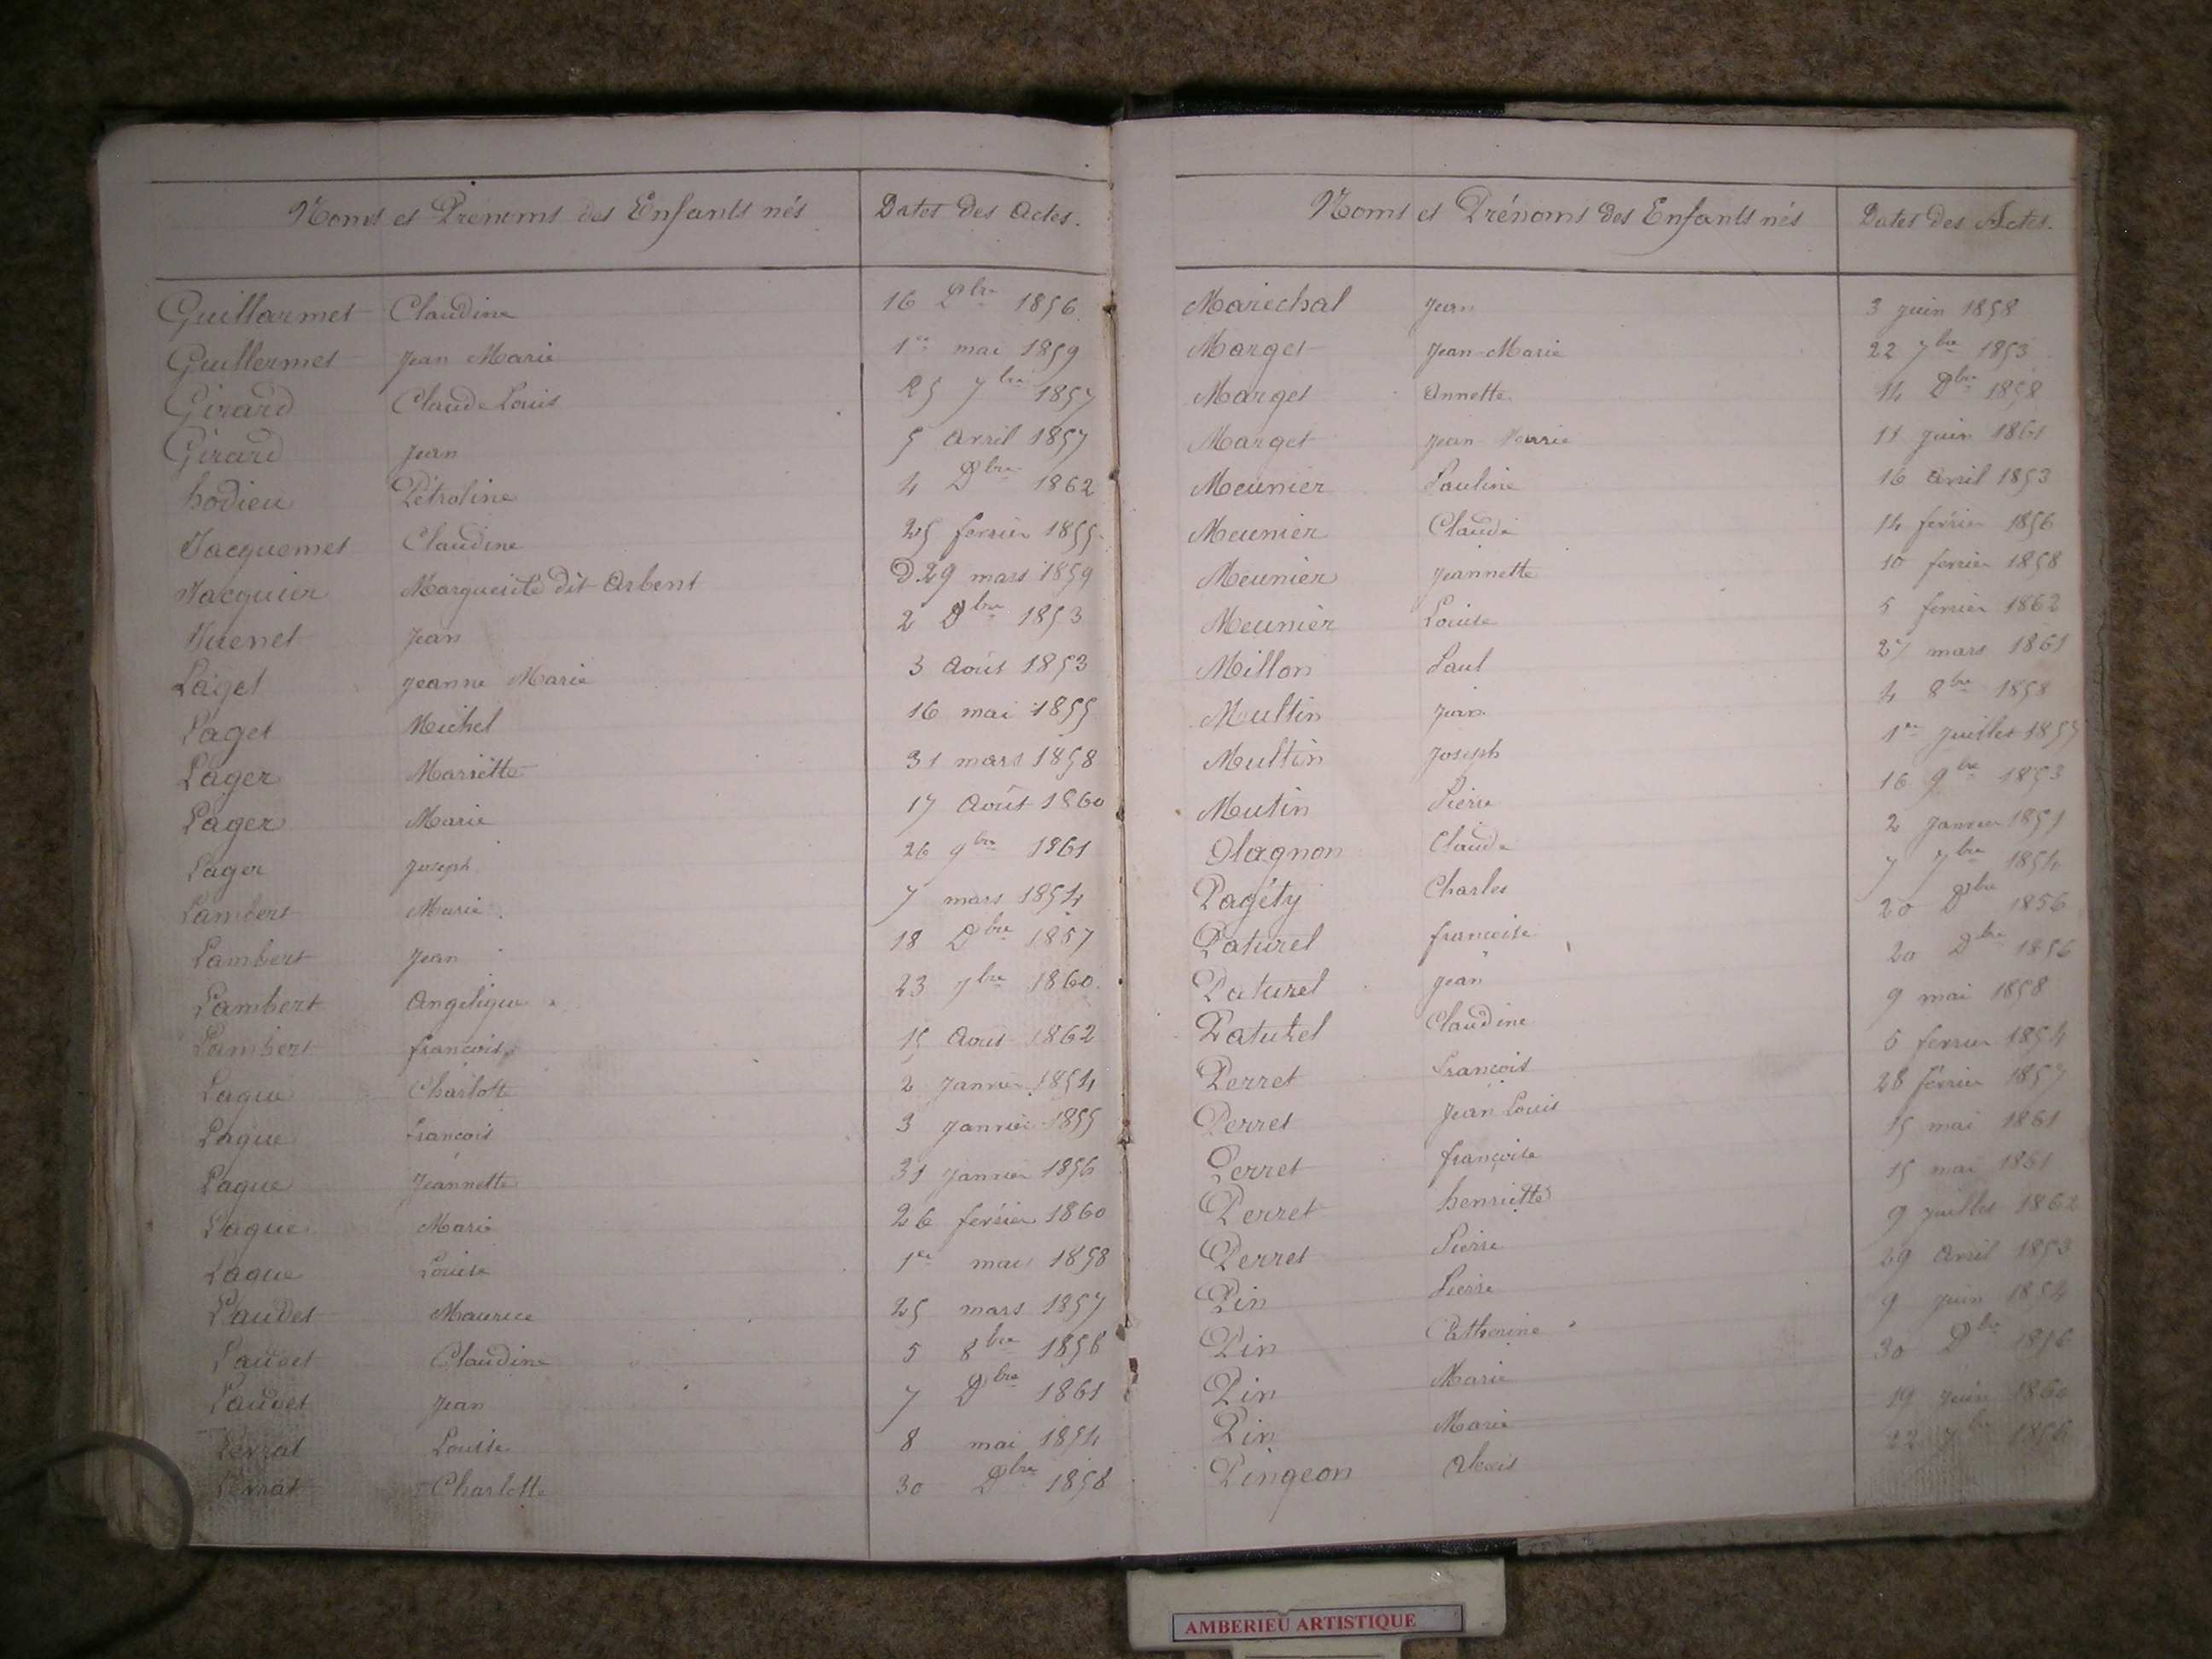 Noms et Prénoms des Enfants nés Dates des Actes.
Guillarmet Claudine 16 Dbre 1856
Guillermet Jean Marie 1er mai 1859
Girard Claude Louis 25 7bre 1857
Girard Jean 5 Avril 1857
hodieu Pétroline 4 Dbre 1862
Jacquemet Claudine 25 fevrier 1855
Jacquier Marguerite dit Arbent D. 29 mars 1859
Jean 2 Dbre 1853
Laget Jeanne Marie 3 Août 1853
Laget Michel 16 mai 1855
Lager Mariette 31 mars 1858
Lager Marie 17 Août 1860
Lager Joseph 26 9bre 1861
Lambert Marie 7 mars 1854
Lambert Jean 18 Dbre 1857
Lambert Angelique 23 7bre 1860
Lambert françois 15 Aout 1862
Lague Charlotte 2 Janvier 1854
Lague françois 3 Janvier 1855
Lague Jeannette 31 Janvier 1856
Lague Marie 26 fevrier 1860
Lague Louise 1er 1858
Laudet Maurice 25 mars 1857
Laudet Claudine 5 8bre 1858
Laudet Jean 7 Dbre 1861
Levrat Louise 8 mai 1854
Levrat Charlotte 30 Dbre 1858
Noms et Prénoms des Enfants nés Dates des Actes.
Marechal Jean 3 juin 1858
Marget Jean-Marie 22 7bre 1853
Marget Annette 14 Dbre 1858
Marget Jean Marie 11 juin 1861
Meunier Pauline 16 Avril 1853
Meunier Claude 14 fevrier 1856
Meunier Jeannette 10 fevrier 1858
Meunier Louise 5 fevrier 1862
Millon Paul 27 mars 1861
Multin Jean 4 8bre 1858
Multin Joseph 1er Juillet 1857
Mutin Pierre 16 9bre 1853
Olagnon Claude 2 Janvier 1851
Pagéty Charles 7 7bre 1854
Paturel françoise 20 Dbre 1856
Paturel Jean 20 Dbre 1856
Paturel Claudine 9 mai 1858
Perret François 6 fevrier 1854
Perret Jean Louis 28 février 1857
Perret françoise 15 mai 1861
Perret henriette 15 mai 1861
Perret Pierre 9 Juillet 1862
Pin Pierre 29 Avril 1853
Pin Catherine 9 Juin 1854
Pin Marie 30 Dbre 1856
Pin Marie 19 Juin 1860
Pingeon Alexis 22
AMBERIEU ARTISTIQUE